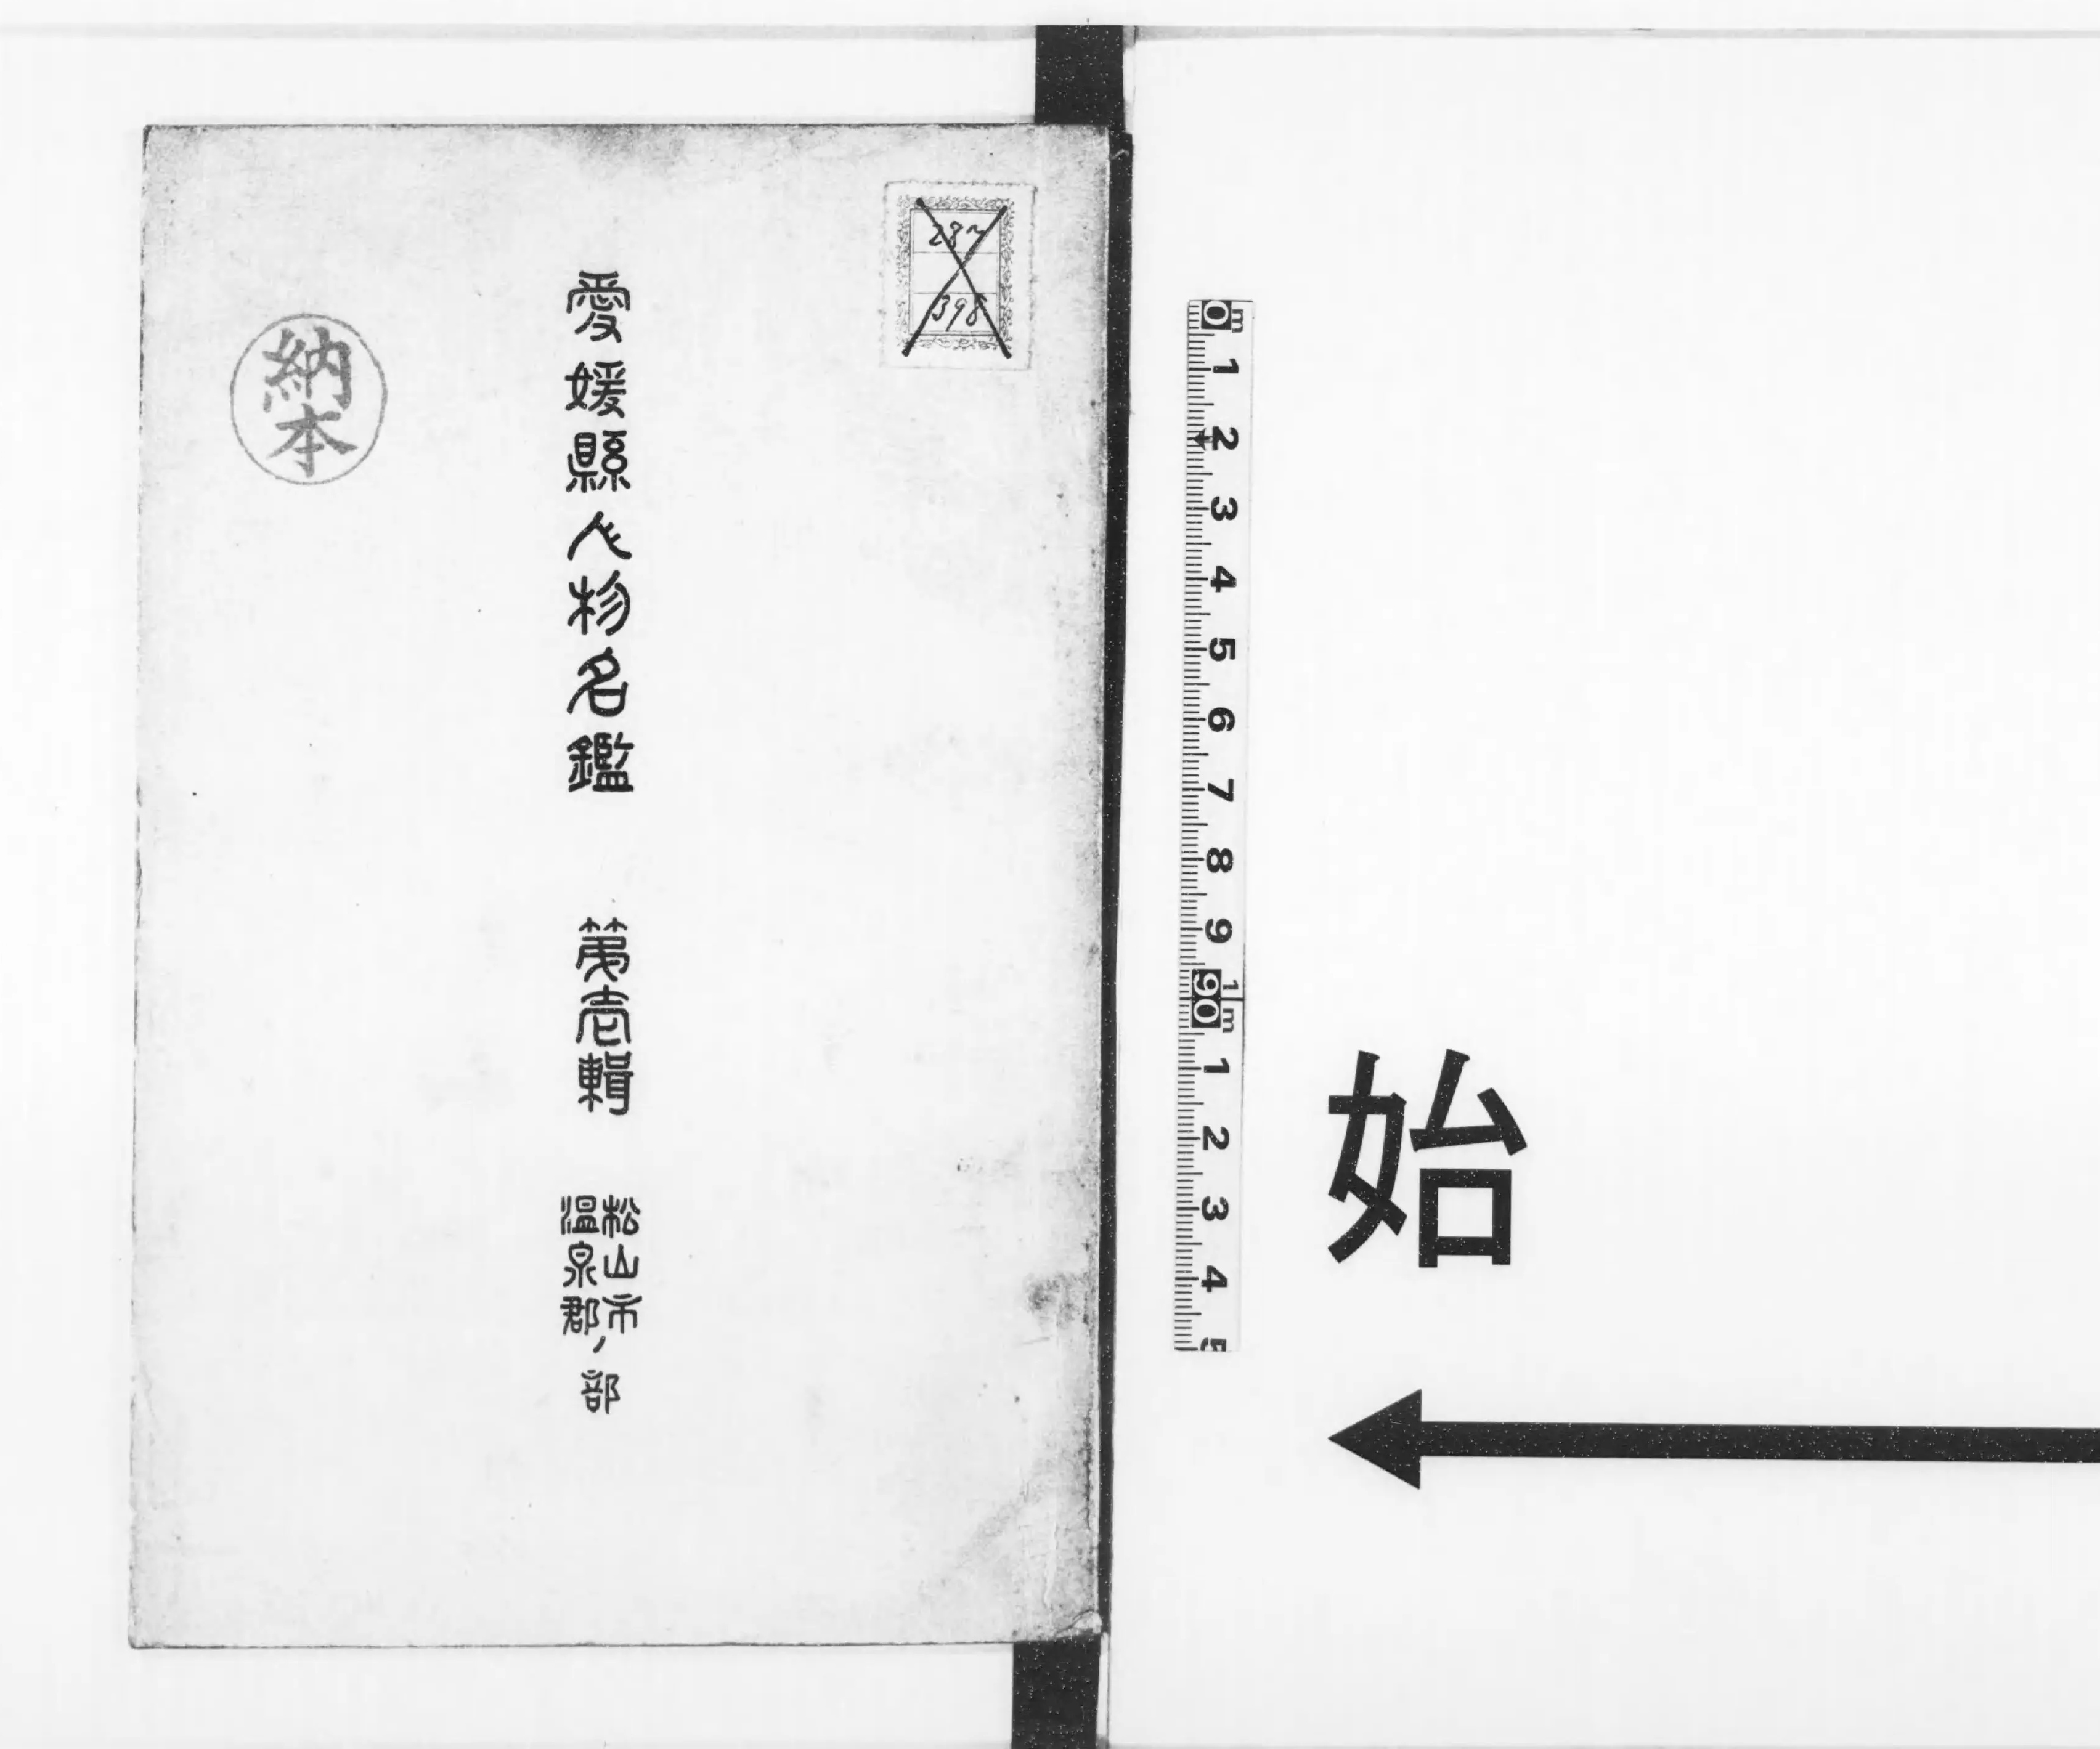 始
0 m 1 2 3 4 5 6 7 8 9 90 1m 1 2 3 4 5
287
398
愛媛縣人物名鑑 第壱輯 松山市
温泉郡ノ部
納本